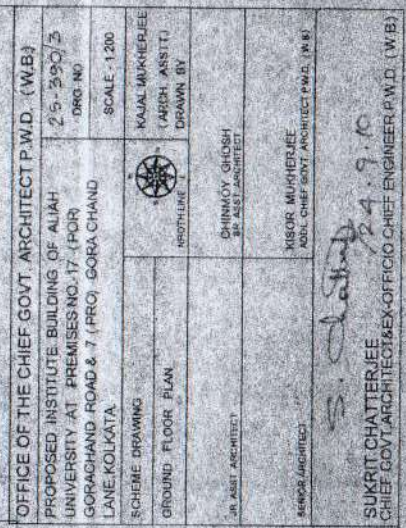 OFFICE OF THE CHIEF GOVT. ARCHITECT P.W.D. (W.B)
PROPOSED INSTITUTE BUILDING OF ALIAH
UNIVERSITY AT PREMISES NO. 17 (POR)
GORACHAND ROAD & 7 (PRO) GORA CHAND
LANE, KOLKATA.
25-390/3
DRG NO
SCALE - 1:200
SCHEME DRAWING
GROUND FLOOR PLAN
NROTH LINE
KAJAL MUKHERJEE
(ARCH. ASSTT.)
DRAWN BY
JR. ASST ARCHITECT
CHINMOY GHOSH
SR. ASST ARCHITECT
SENIOR ARCHITECT
KISOR MUKHERJEE
ADDL CHIEF GOVT ARCHITECT P.W.D. (W.B)
S. Chatterjee
24.9.10
SUKRIT CHATTERJEE
CHIEF GOVT. ARCHITECT & EX-OFFICIO CHIEF ENGINEER P.W.D. (W.B)